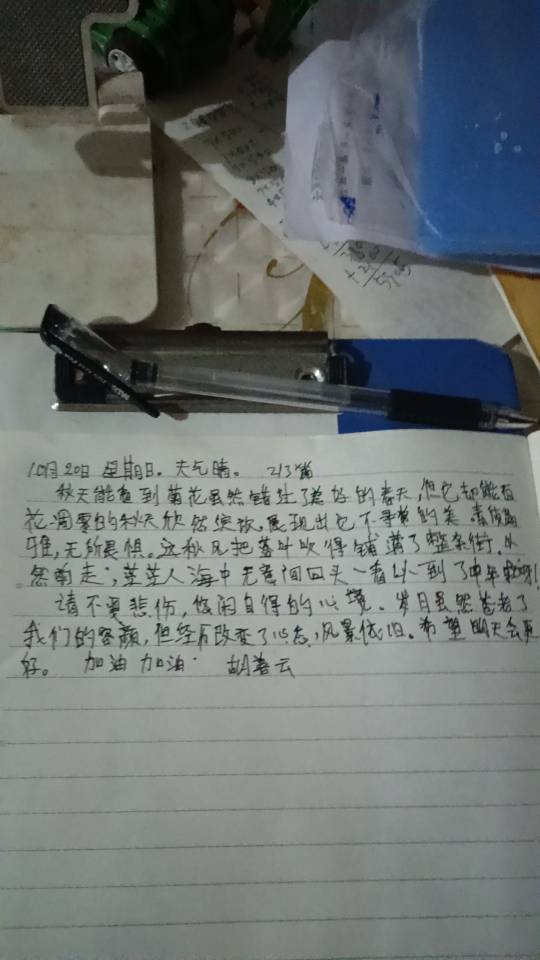 10月20日 星期日。天气晴。 213篇
秋天能看到菊花虽然错过了美好的春天,但它却能在
花凋零的秋天欣然绽放,展现出它不寻常的美。
雅,无所畏惧。这秋风把落叶吹得铺满了整条街,
然前走;茫茫人海中无意间回头一看 到了中年
请不要悲伤,悠闲自得的心境。岁月虽然苍老了
我们的容颜,但经历改变了心态,风景依旧。希望明天会更
好。 加油 加油